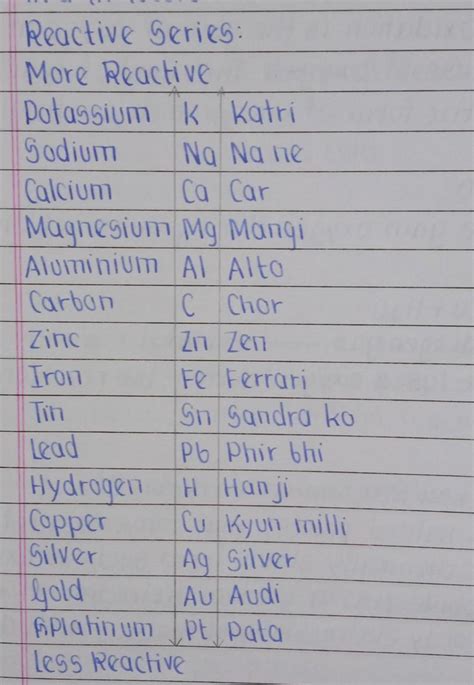 Reactive Series:
More Reactive
Potassium K Katri
Sodium Na Na ne
Calcium Ca Car
Magnesium Mg Mangi
Aluminium Al Alto
Carbon C Chor
Zinc Zn Zen
Iron Fe Ferrari
Tin Sn Sandra ko
Lead Pb Phir bhi
Hydrogen H Hanji
Copper Cu Kyun milli
Silver Ag Silver
Gold Au Audi
Platinum Pt Pata
Less Reactive